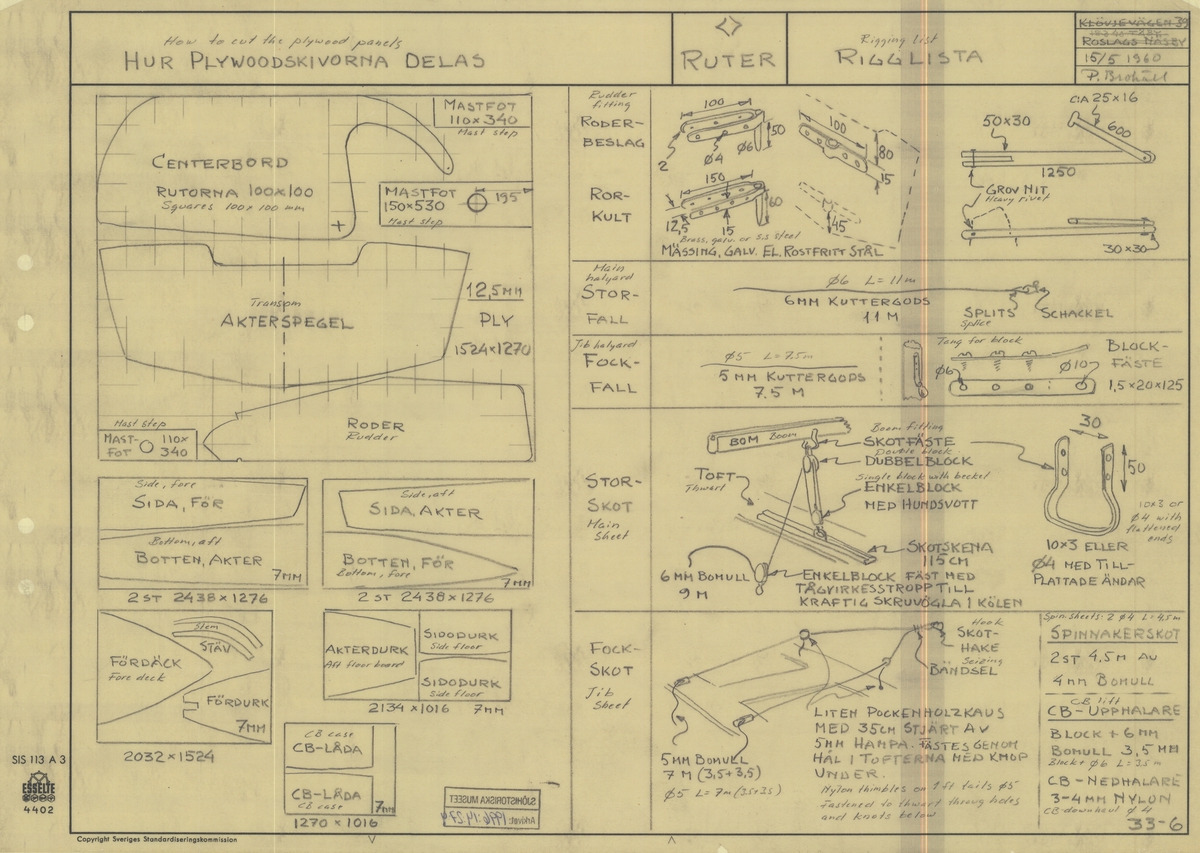 How to cut the plywood panels
HUR PLYWOODSKIVORNA DELAS
RUTER
Rigging List
RIGGLISTA
KLÖVJEVÄGEN 39
ROSLAGS NÄSBY
15/5 1960
P. Brohäll
MASTFOT
110×340
Mast step
CENTERBORD
RUTORNA 100×100
Squares 100×100 mm
MASTFOT
150×530
195
Mast step
Transom
AKTERSPEGEL
12,5MM
PLY
1524×1270
Mast step
MAST-
FOT
110×
340
RODER
Rudder
Side, fore
SIDA, FÖR
Bottom, aft
BOTTEN, AKTER
7MM
2 ST 2438×1276
Side, aft
SIDA, AKTER
BOTTEN, FÖR
Bottom, fore
7MM
2 ST 2438×1276
Stem
STÄV
FÖRDÄCK
Fore deck
FÖRDURK
7MM
2032×1524
AKTERDURK
Aft floor board
SIDODURK
Side floor
SIDODURK
Side floor
2134×1016 7MM
CB case
CB-LÅDA
CB-LÅDA
CB case
7MM
1270×1016
SJÖHISTORISKA MUSEET
Arkivet: 1996:14:274
Rudder
fitting
RODER-
BESLAG
ROR-
KULT
100
50
2
Ø4
Ø6
150
60
12,5
15
100
80
15
45
Brass, galv. or s.s steel
MÄSSING, GALV. EL. ROSTFRITT STÅL
CIA 25×16
50×30
600
1250
GROV NIT
Heavy rivet
30×30
Main
halyard
STOR-
FALL
Ø6 L=11m
6MM KUTTERGODS
11 M
SPLITS
Splice
SCHACKEL
Jib halyard
FOCK-
FALL
Ø5 L=7.5m
5 MM KUTTERGODS
7.5 M
Tang for block
BLOCK-
FÄSTE
Ø6
Ø10
1,5×20×125
STOR-
SKOT
Main
Sheet
BOM Boom
Boom fitting
SKOTFÄSTE
Double block
DUBBELBLOCK
Single block with becket
ENKELBLOCK
MED HUNDSVOTT
TOFT
Thwart
SKOTSKENA
115 CM
6 MM BOMULL
9 M
ENKELBLOCK FÄST MED
TÅGVIRKESSTROPP TILL
KRAFTIG SKRUVÖGLA I KÖLEN
30
50
10×3 or
Ø4 with
flattened
ends
10×3 ELLER
Ø4 MED TILL-
PLATTADE ÄNDAR
FOCK-
SKOT
Jib
Sheet
Hook
SKOT-
HAKE
Seizing
BÄNDSEL
5 MM BOMULL
7 M (3,5+3,5)
Ø5 L=7m (3.5+3.5)
LITEN POCKENHOLZKAUS
MED 35CM STJÄRT AV
5MM HAMPA. FÄSTES GENOM
HÅL I TOFTERNA MED KNOP
UNDER.
Nylon thimbles on 1 ft tails Ø5
Fastened to thwart throug holes
and knots below
Spin. sheets: 2 Ø4 L=4,5m
SPINNAKERSKOT
2ST 4,5M AV
4MM BOMULL
CB lift
CB-UPPHALARE
BLOCK + 6MM
BOMULL 3,5 MM
Block + Ø6 L=3.5m
CB-NEDHALARE
3-4MM NYLON
CB-downhaul Ø4
33-6
SIS 113 A 3
ESSELTE
4402
Copyright Sveriges Standardiseringskommission